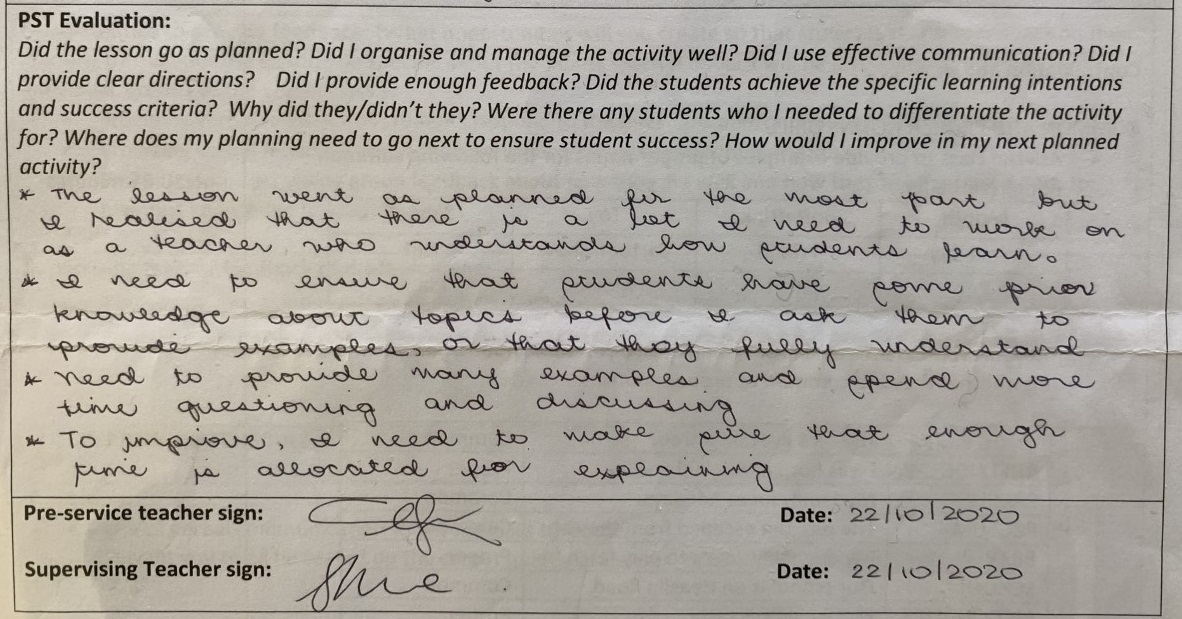 PST Evaluation:
Did the lesson go as planned? Did I organise and manage the activity well? Did I use effective communication? Did I
provide clear directions? Did I provide enough feedback? Did the students achieve the specific learning intentions
and success criteria? Why did they/didn't they? Were there any students who I needed to differentiate the activity
for? Where does my planning need to go next to ensure student success? How would I improve in my next planned
activity?
* The lesson went as planned for the most part but
I realised that there is a lot I need to work on
as a teacher who understands how students learn.
* I need to ensure that students have some prior
knowledge about topics before I ask them to
provide examples, or that they fully understand
* need to provide many examples and spend more
time questioning and discussing
* To improve, I need to make sure that enough
time is allocated for explaining
Pre-service teacher sign:
Date: 22/10/2020
Supervising Teacher sign:
Date: 22/10/2020